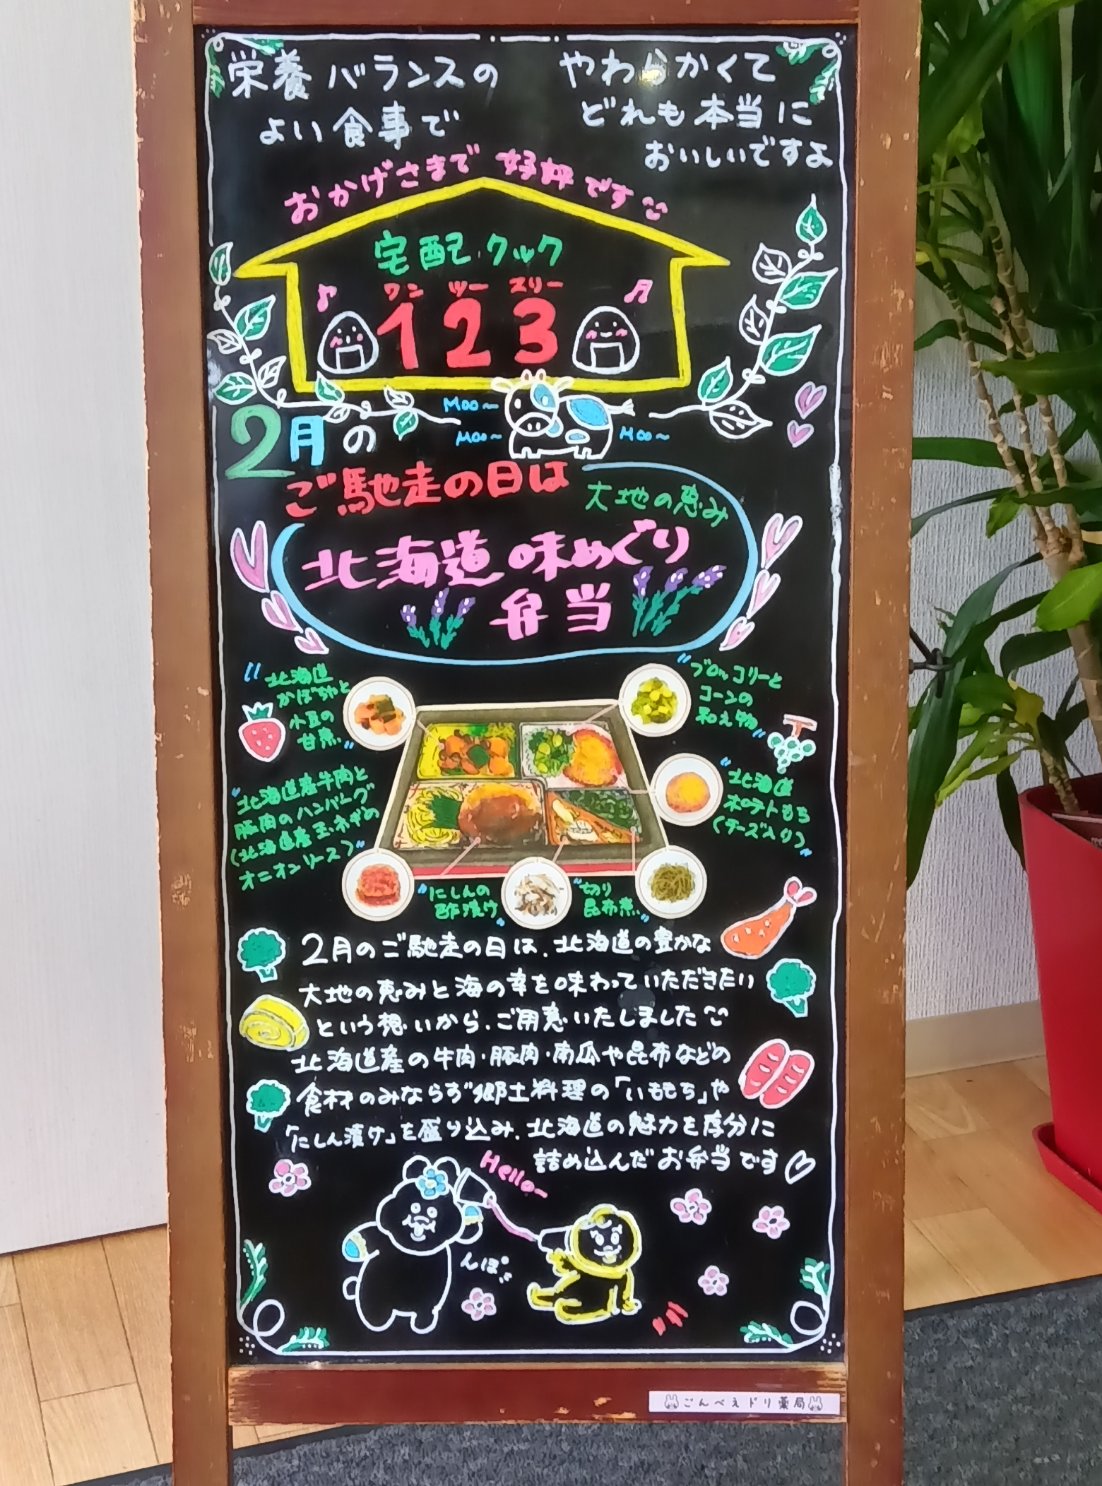 栄養バランスの
よい食事で
やわらかくて
どれも本当に
おいしいですよ
おかげさまで好評です
宅配クック
ワン ツー スリー
1 2 3
Moo~
Moo~
Moo~
2月の
ご馳走の日は
大地の恵み
北海道味めぐり
弁当
"北海道
かぼちゃと
小豆の
甘煮"
"ブロッコリーと
コーンの
和え物"
"北海道産牛肉と
豚肉のハンバーグ
(北海道産玉ネギの
オニオンソース)"
"北海道
ポテトもち
(チーズ入り)"
"にしんの
酢漬け"
"切り
昆布煮"
2月のご馳走の日は、北海道の豊かな
大地の恵みと海の幸を味わっていただきたい
という想いから、ご用意いたしました
北海道産の牛肉・豚肉・南瓜や昆布などの
食材のみならず郷土料理の「いももち」や
「にしん漬け」を盛り込み、北海道の魅力を存分に
詰め込んだお弁当です
Hello~
んぽ
ごんべえドリ薬局